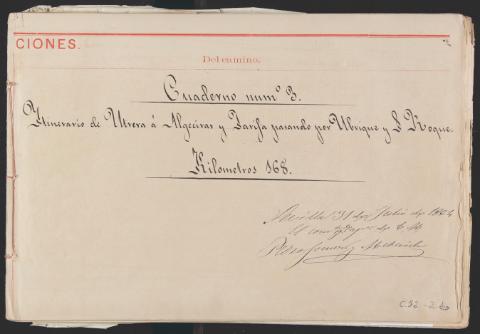 CIONES.
Del camino.
Cuaderno num.º 3.
Itinerario de Utrera á Algeciras y Tarifa pasando por Ubrique y S. Roque.
Kilometros 168.
Sevilla 31 de Julio de 1864
El com.te
C.32 - 2